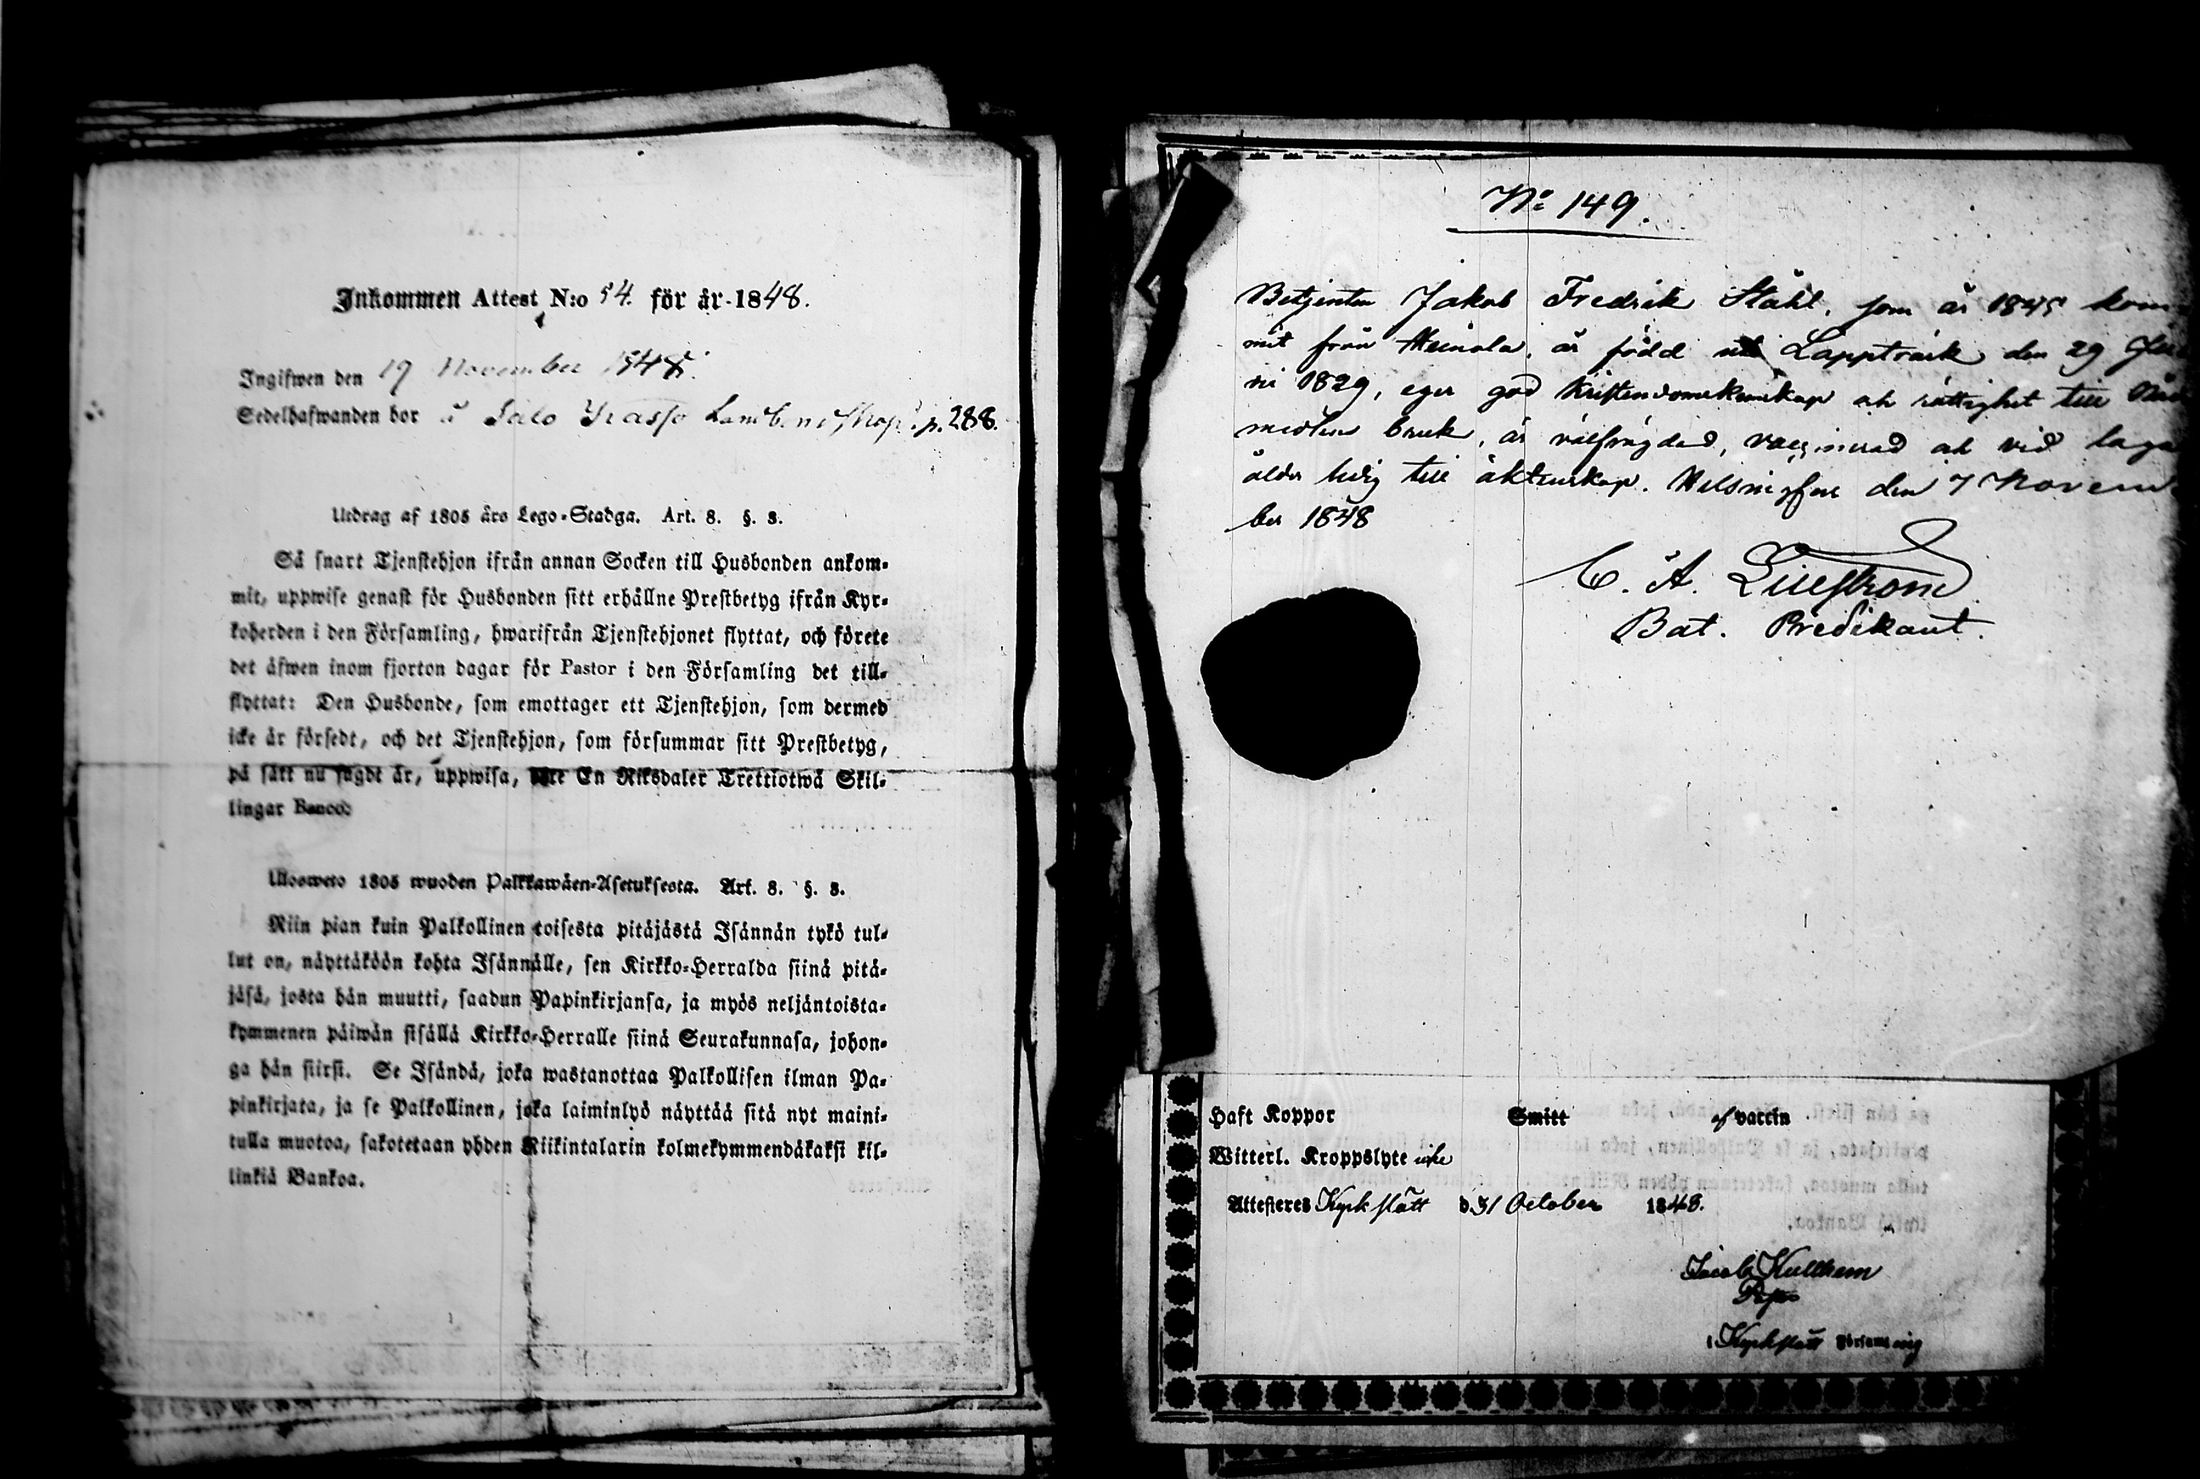 Inkommen Attest N:o 54. för år 1848.
Ingifwen den 19 November 1848.
Sedelhafwanden bor å p. 288.
Utdrag af 1805 års Lego-Stadga. Art. 8. §. 3.
Så snart Tjenstehjon ifrån annan Socken till Husbonden ankom-
mit, uppwise genast för Husbonden sitt erhållne Prestbetyg ifrån Kyr-
koherden i den Församling, hwarifrån Tjenstehjonet flyttat, och förete
det äfwen inom fjorton dagar för Pastor i den Församling det till-
flyttat: Den Husbonde, som emottager ett Tjenstehjon, som dermed
icke är försedt, och det Tjenstehjon, som försummar sitt Prestbetyg,
på sätt nu sagdt är, uppwisa, böte En Riksdaler Trettiotwå Skil-
lingar Banco.
Ulosweto 1805 wuoden Palkkawäen-Asetuksesta. Art. 8. §. 3.
Niin pian kuin Palkollinen toisesta pitäjästä Isännän tykö tul-
lut on, näyttäköön kohta Isännälle, sen Kirkko-Herralda siinä pitä-
jäsä, josta hän muutti, saadun Papinkirjansa, ja myös neljäntoista-
kymmenen päiwän sisällä Kirkko-Herralle siinä Seurakunnasa, johon-
ga hän siirsi. Se Isändä, joka wastanottaa Palkollisen ilman Pa-
pinkirjata, ja se Palkollinen, joka laiminlyö näyttää sitä nyt maini-
tulla muotoa, sakotetaan yhden Riikintalarin kolmekymmendäkaksi kil-
linkiä Bankoa.
No 149.
Betjenten Jakob Fredrik Ståhl, som år 1845 kom
mit från Heinola, är född uti Lappträsk den 29 Ju
ni 1829, eger god Kristendomskunskap och rättighet till Nåd
medlens bruk, är välfrägdad, vaccinerad och vid laga
ålder ledig till äktenskap. Helsingfors den 7 Novem
ber 1848
C. A. Liljestrom
Bat. Predikant.
Haft Koppor Smitt af vaccin
Witterl. Kroppslyte icke
Attesteres Kyrkslätt d. 31 October 1848.
Jacob
i Kyrkslätt Församling